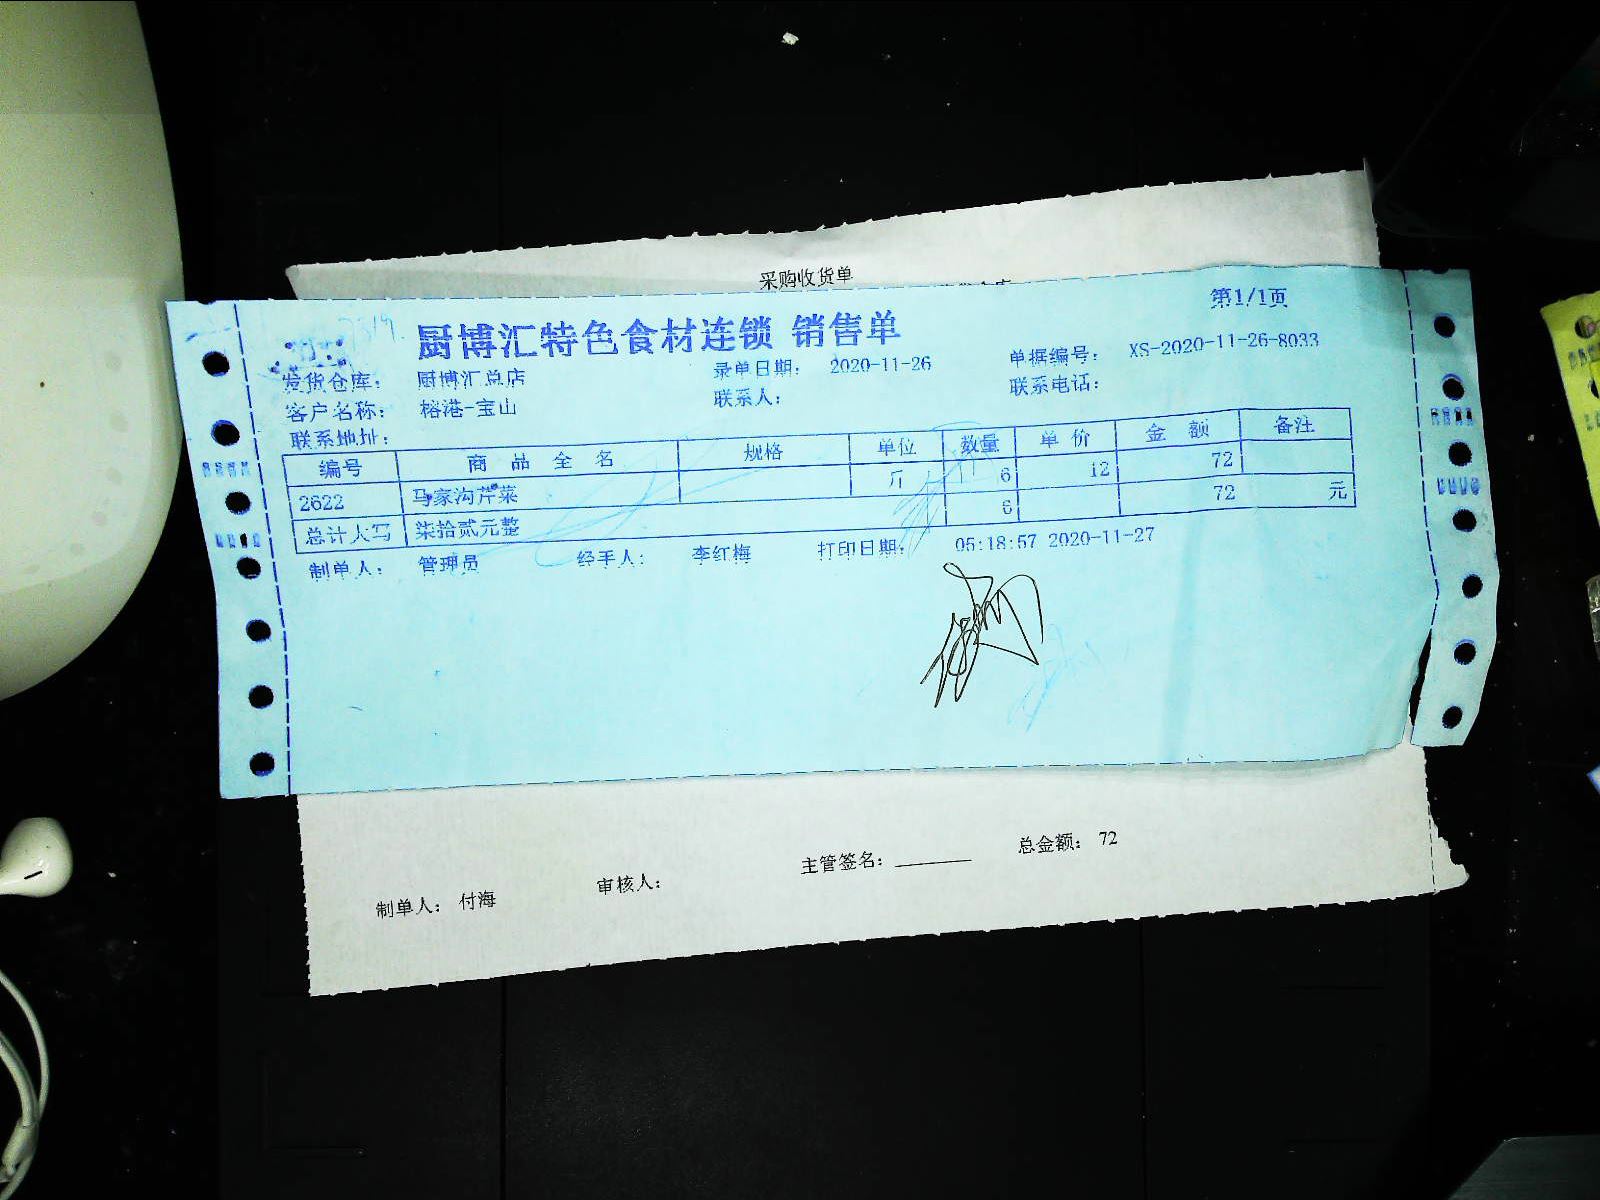 采购收货单
第1/1页
厨博汇特色食材连锁 销售单
发货仓库： 厨博汇总店 录单日期： 2020-11-26 单据编号： XS-2020-11-26-8033
客户名称： 榕港-宝山 联系人： 联系电话：
联系地址：
编号 商品全名 规格 单位 数量 单价 金额 备注
2622 马家沟芹菜 斤 6 12 72
总计大写 柒拾贰元整 6 72 元
制单人： 管理员 经手人： 李红梅 打印日期： 05:18:57 2020-11-27
制单人： 付海 审核人： 主管签名： 总金额： 72